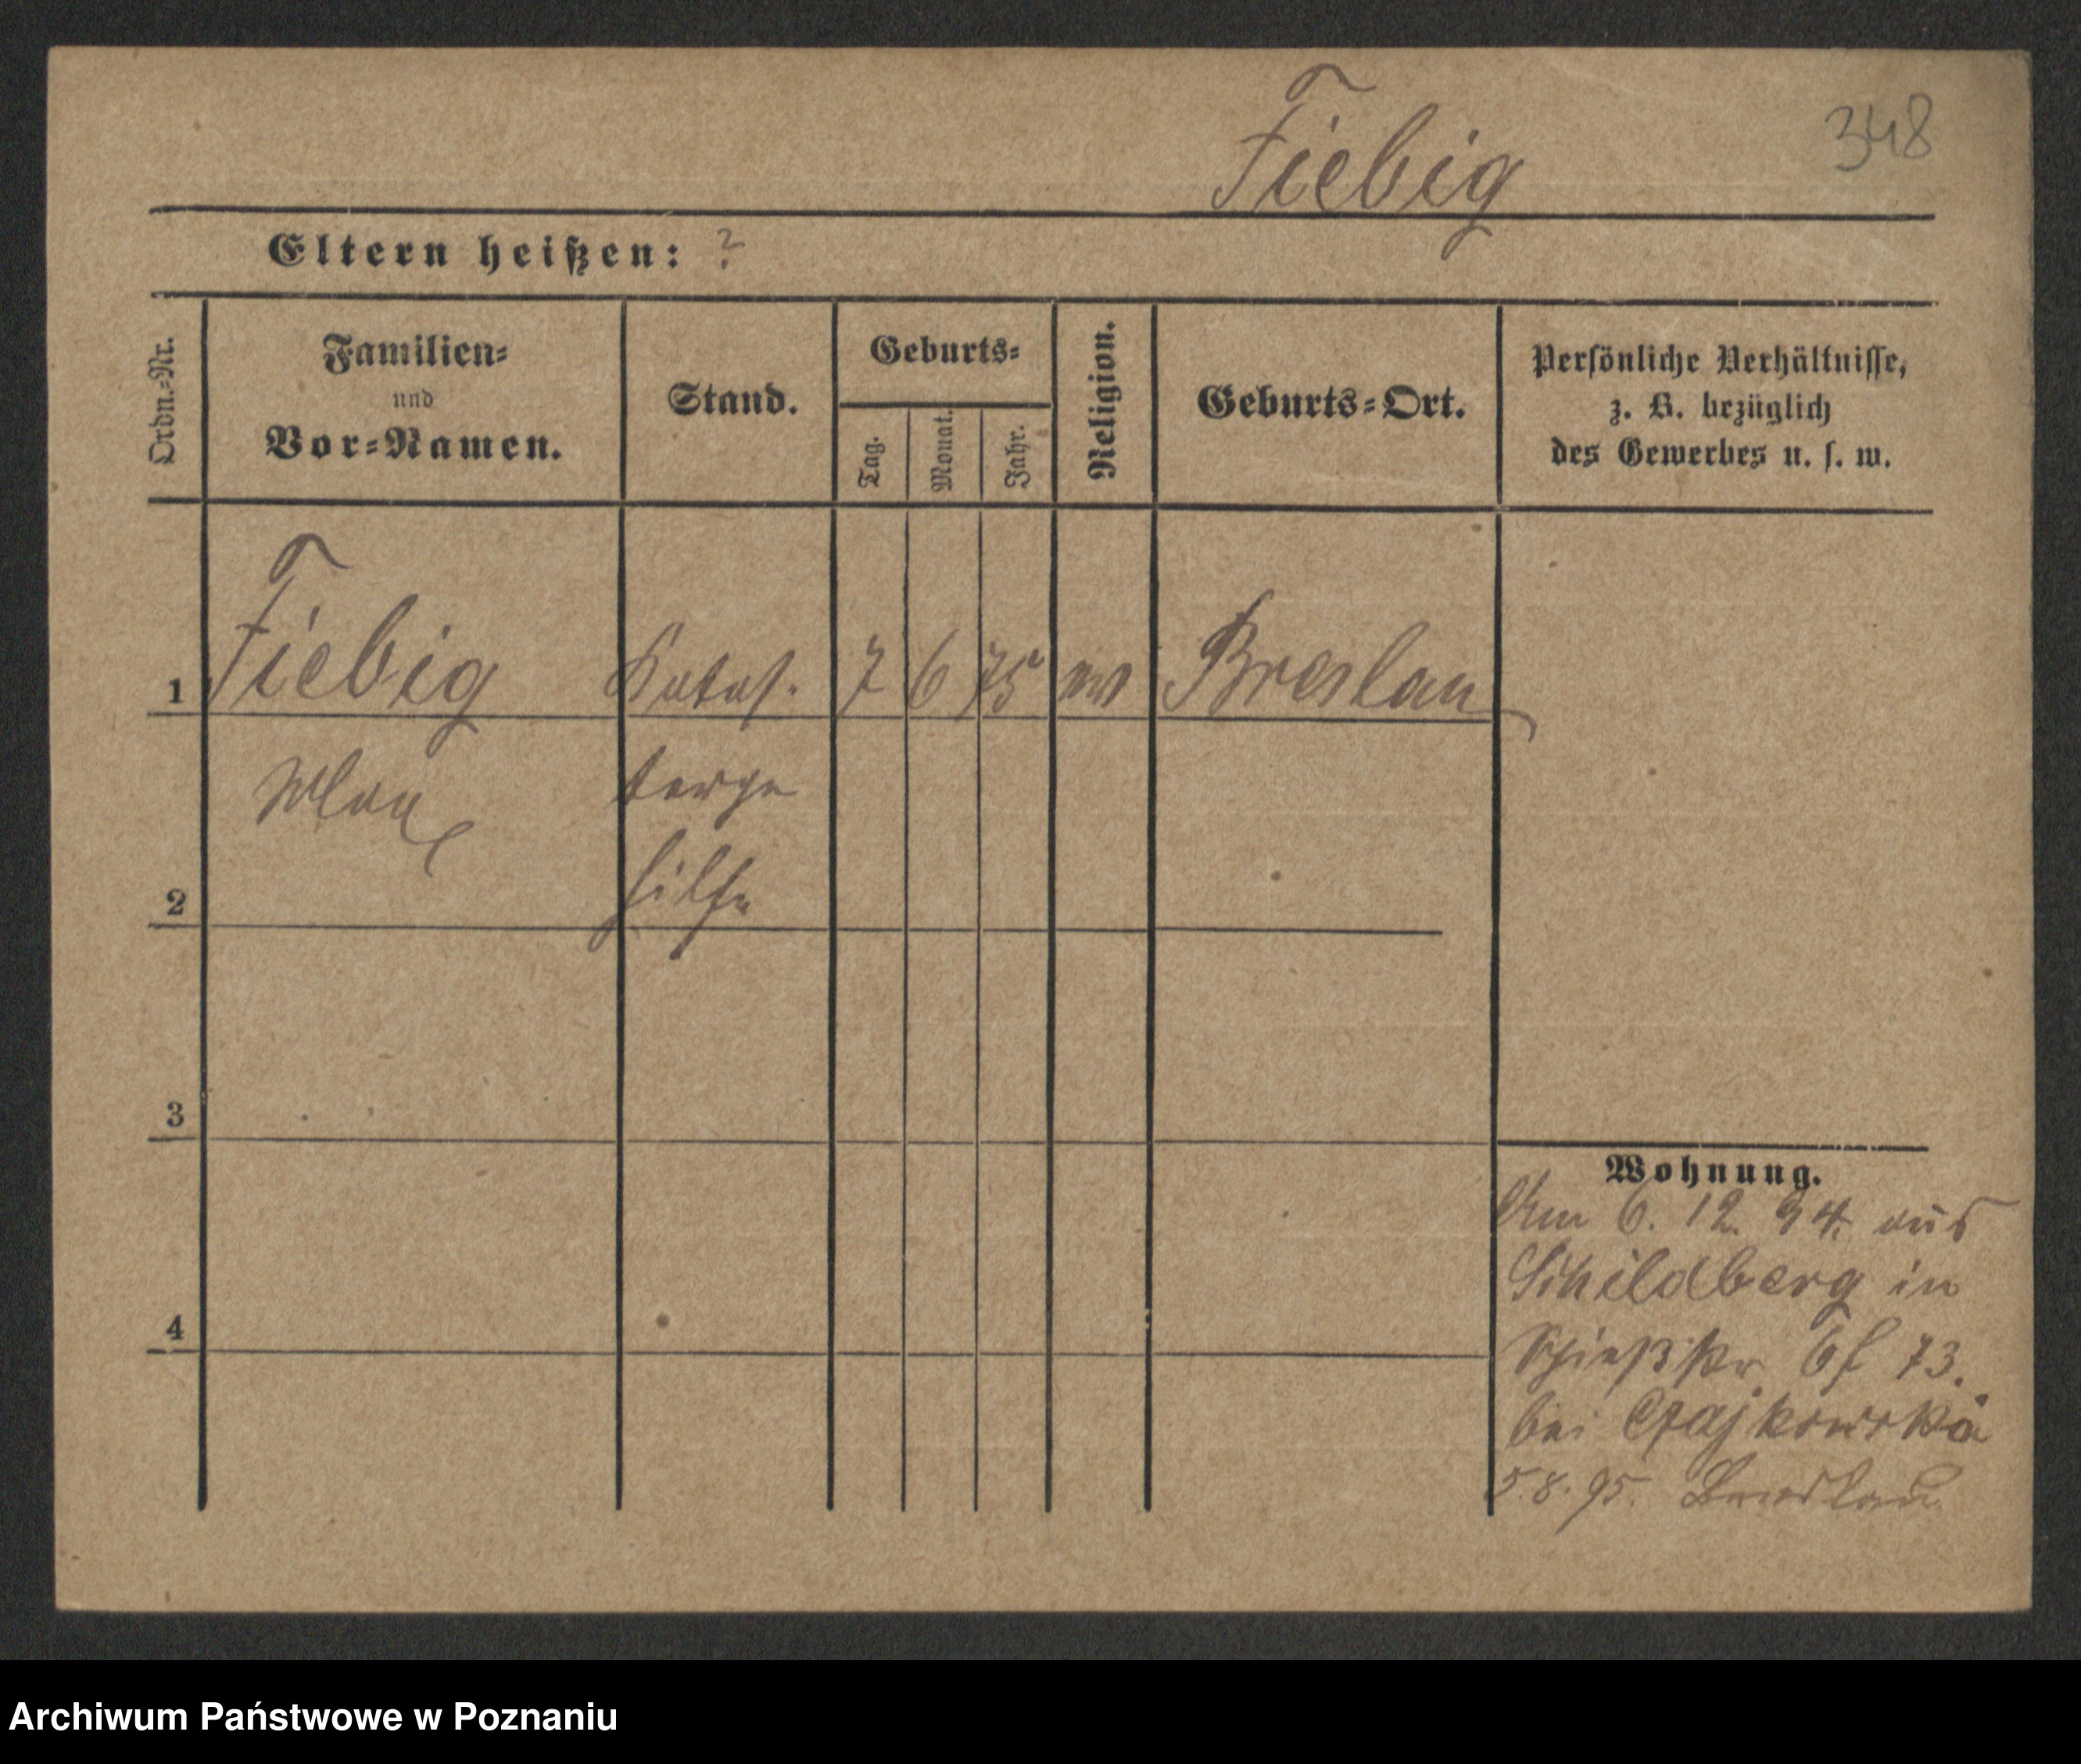 Fiebig
348
Eltern heißen: ?
Ordn.-Nr.
Familien-
und
Vor-Namen.
Stand.
Geburts-
Tag.
Monat.
Jahr.
Religion.
Geburts-Ort.
Persönliche Verhältnisse,
z. B. bezüglich
des Gewerbes u. s. w.
1 Fiebig Katas- 7 6 75 ev Breslau
Max terge
2 hilfe
3
4
Wohnung.
Am 6. 12. 94. aus
Schildberg in
Schießstr. 73.
bei Czajkowska
5.8.95. Breslau